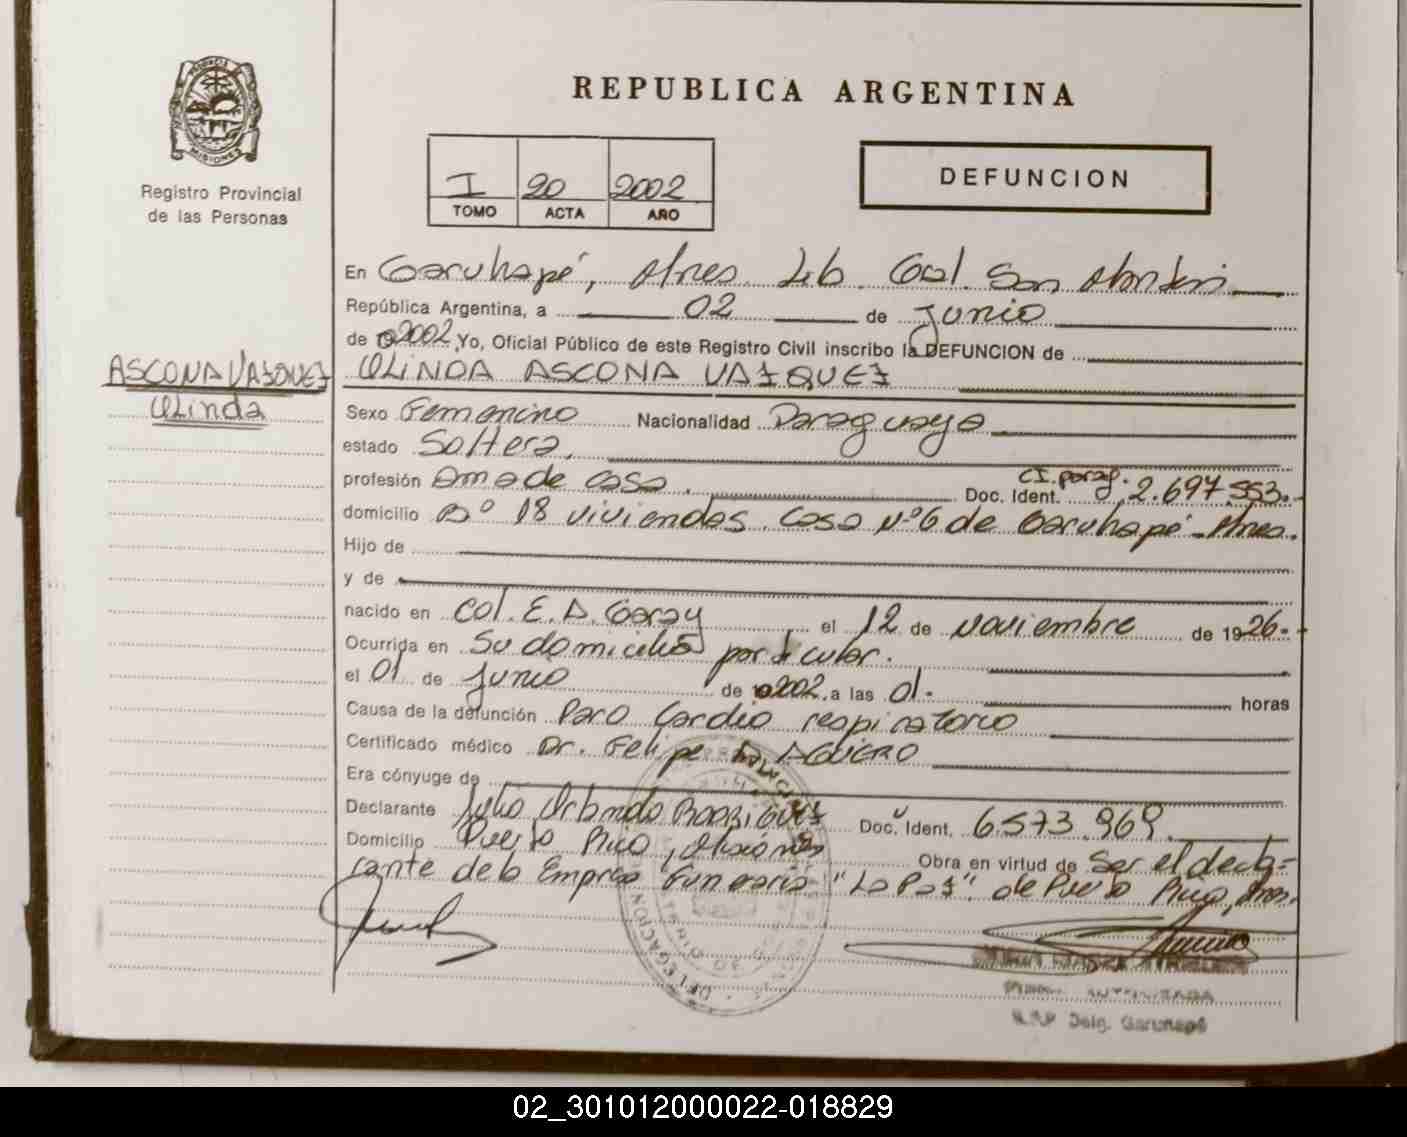 PROVINCIA DE
MISIONES
Registro Provincial
de las Personas
REPUBLICA ARGENTINA
I 20 2002
TOMO ACTA AÑO
DEFUNCION
En Garuhapé, Mnes. Lib. Gral. San Martín
República Argentina, a 02 de Junio
de 2002, Yo, Oficial Público de este Registro Civil inscribo la DEFUNCION de
OLINDA ASCONA VAZQUEZ
ASCONA VAZQUEZ
Olinda
Sexo Femenino Nacionalidad Paraguaya
estado Soltera.
profesión Ama de casa. Doc. Ident. CI. parag. 2.697.553.-
domicilio Bº 18 viviendas. Casa Nº 6 de Garuhapé - Mnes.
Hijo de
y de
nacido en Col. E. A. Garay el 12 de Noviembre de 1926.-
Ocurrida en Su domicilio particular.
el 01 de Junio de 2002. a las 01.- horas
Causa de la defunción Paro Cardio respiratorio
Certificado médico Dr. Felipe AGUERO
Era cónyuge de
Declarante Julio Orlando RODRIGUEZ Doc. Ident. 6573.969.
Domicilio Puerto Rico, Misiones Obra en virtud de Ser el decla-
rante de la Empresa Funeraria "La Paz". de Puerto Rico, Mnes.
DELEGACION
R.P.P Deleg. Garuhapé
02_301012000022-018829